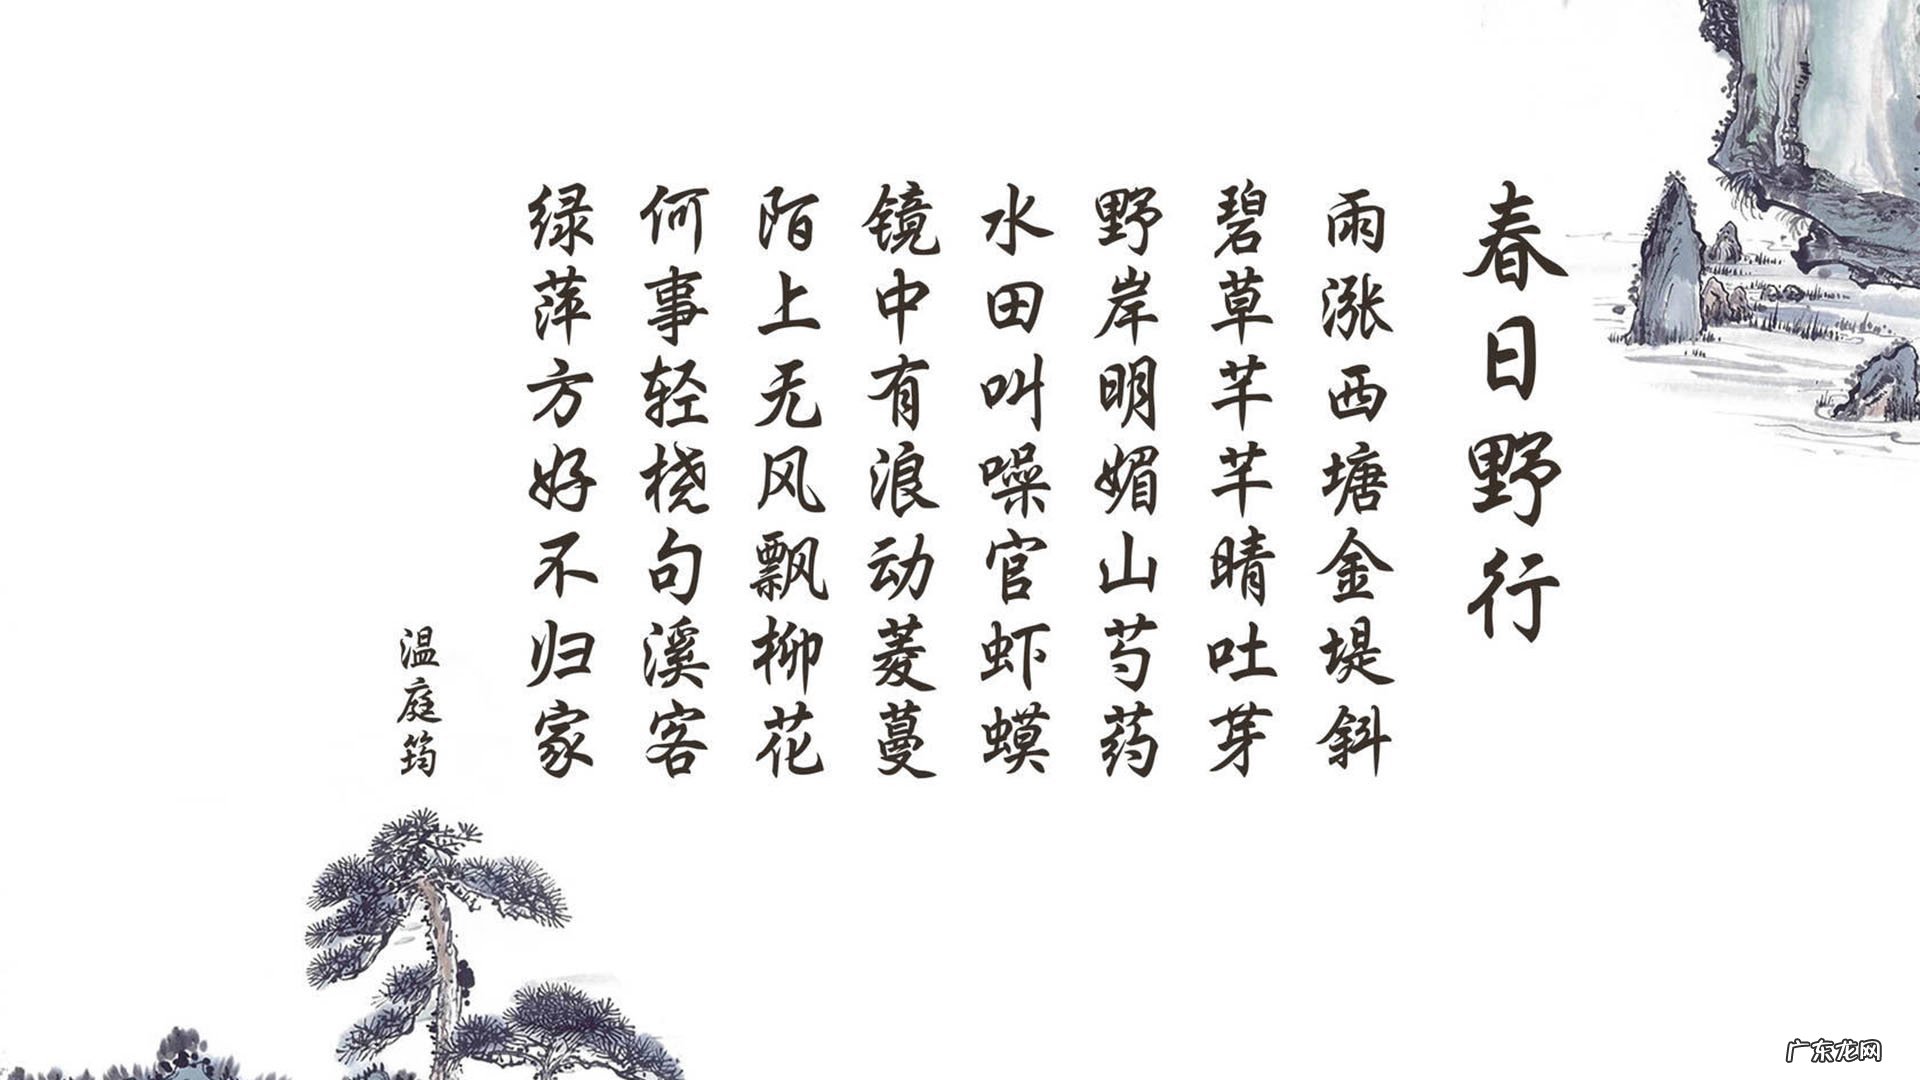 春日野行
雨涨西塘金堤斜
碧草芊芊晴吐芽
野岸明媚山芍药
水田叫噪官虾蟆
镜中有浪动菱蔓
陌上无风飘柳花
何事轻桡句溪客
绿萍方好不归家
温庭筠
广东龙网